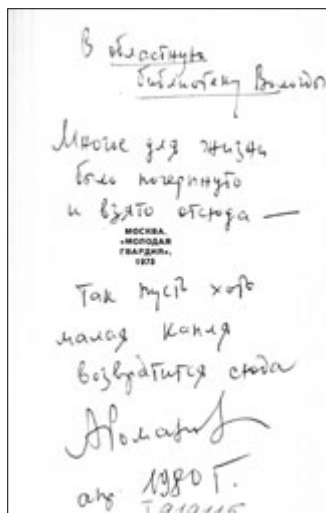 В областную
библиотеку Вологды
Многое для жизни
было почерпнуто
и взято отсюда —
МОСКВА.
«МОЛОДАЯ
ГВАРДИЯ»,
1978
Так пусть хоть
малая капля
возвратится сюда
АРоманов
апр 1980 г.